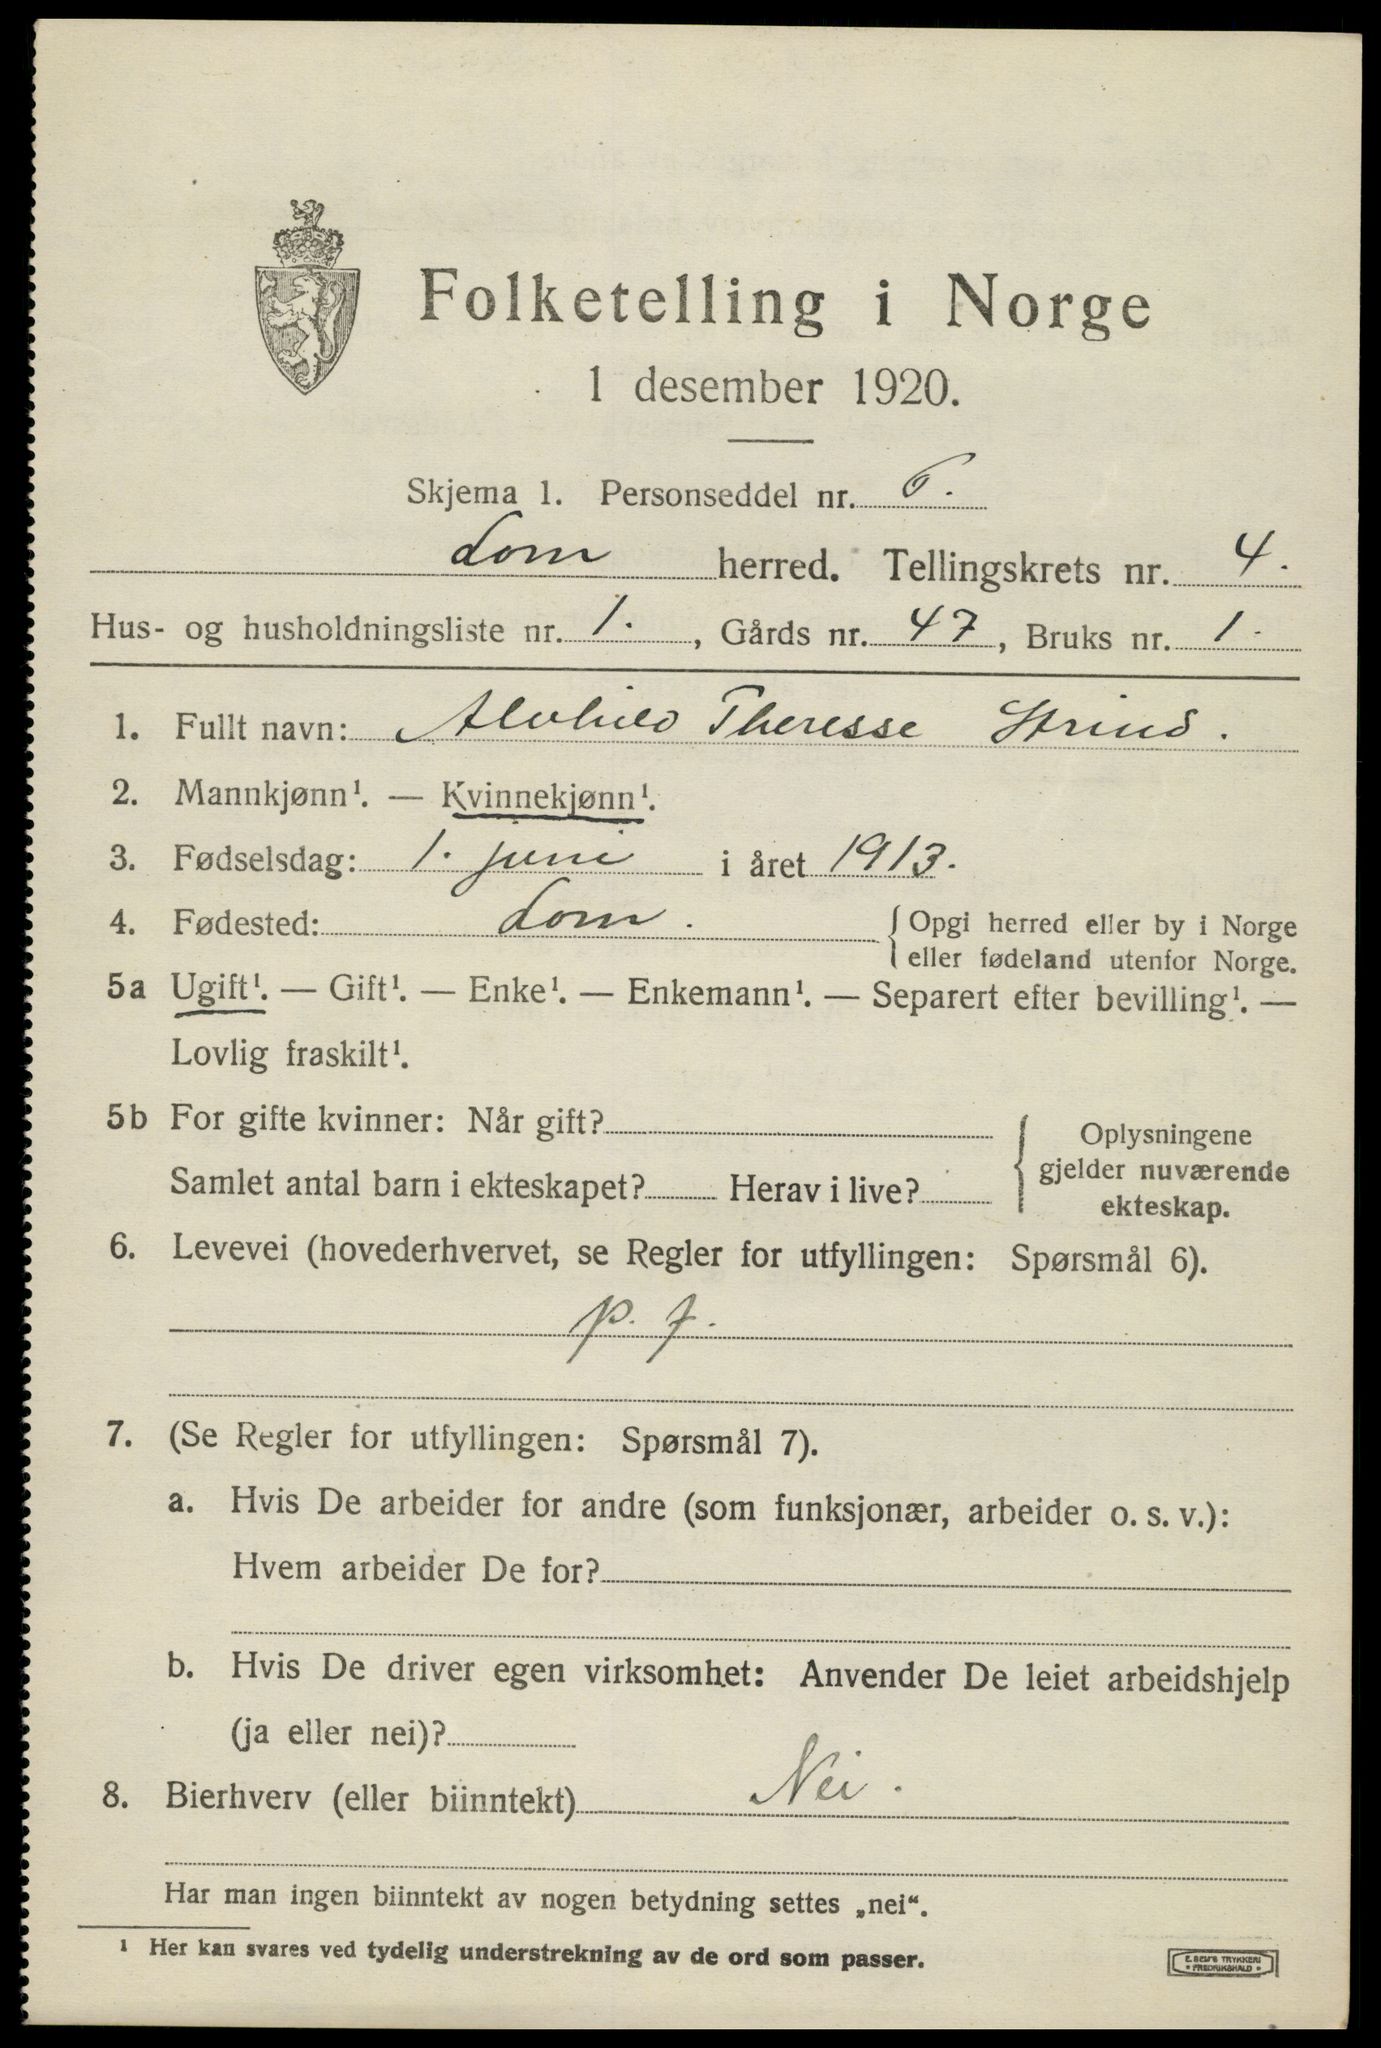 Folketelling i Norge
1 desember 1920.
Skjema 1. Personseddel nr. 6.
Lom herred. Tellingskrets nr. 4.
Hus- og husholdningsliste nr. 1., Gårds nr. 47, Bruks nr. 1.
1. Fullt navn: Alvhild Theresse Strind.
2. Mannkjønn¹. — Kvinnekjønn¹.
3. Fødselsdag: 1. juni i året 1913.
4. Fødested: Lom. { Opgi herred eller by i Norge
eller fødeland utenfor Norge.
5a Ugift¹. — Gift¹. — Enke¹. — Enkemann¹. — Separert efter bevilling¹. —
Lovlig fraskilt¹.
5b For gifte kvinner: Når gift? { Oplysningene
gjelder nuværende
Samlet antal barn i ekteskapet? Herav i live?
ekteskap.
6. Levevei (hovederhvervet, se Regler for utfyllingen: Spørsmål 6).
p. f.
7. (Se Regler for utfyllingen: Spørsmål 7).
a. Hvis De arbeider for andre (som funksjonær, arbeider o. s. v.):
Hvem arbeider De for?
b. Hvis De driver egen virksomhet: Anvender De leiet arbeidshjelp
(ja eller nei)?
8. Bierhverv (eller biinntekt) Nei.
Har man ingen biinntekt av nogen betydning settes „nei“.
¹ Her kan svares ved tydelig understrekning av de ord som passer.
E. SEM'S TRYKKERI
• FREDRIKSHALD •